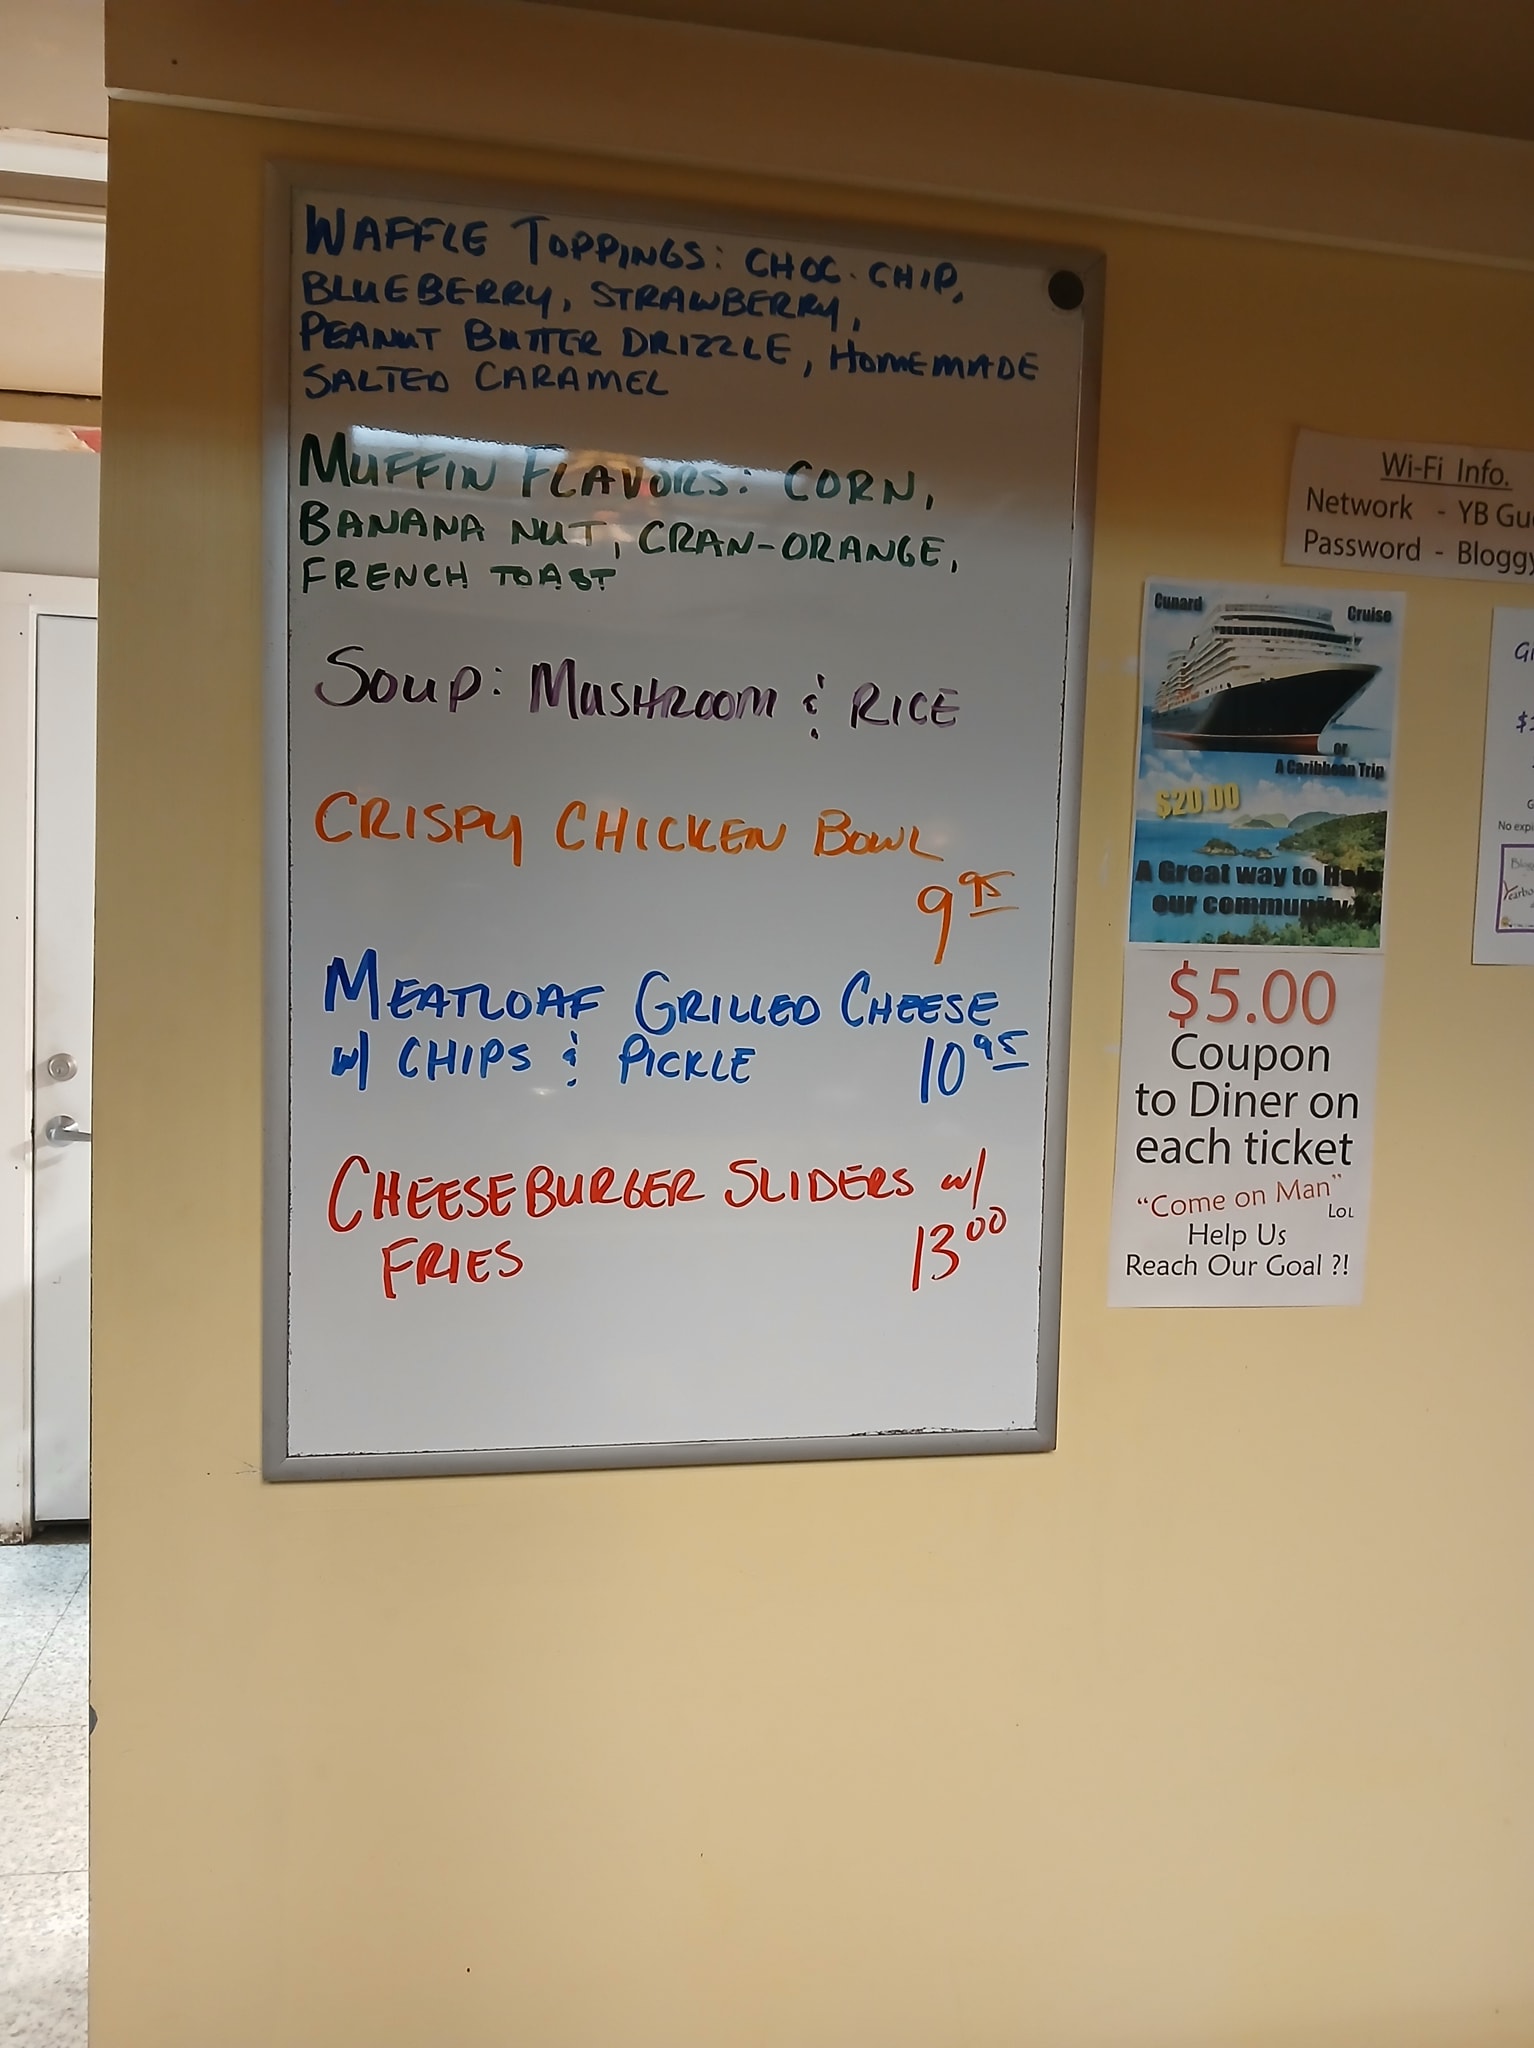 WAFFLE TOPPINGS: CHOC. CHIP,
BLUEBERRY, STRAWBERRY,
PEANUT BUTTER DRIZZLE, HOMEMADE
SALTED CARAMEL
MUFFIN FLAVORS: CORN,
BANANA NUT, CRAN-ORANGE,
FRENCH TOAST
SOUP: MUSHROOM & RICE
CRISPY CHICKEN BOWL
9.95
MEATLOAF GRILLED CHEESE
w/ CHIPS & PICKLE 10.95
CHEESEBURGER SLIDERS w/
FRIES 13.00
Wi-Fi Info.
Network - YB
Password -
Cunard Cruise
or
A Caribbean Trip
$20.00
A Great way to Help
our community
$5.00
Coupon
to Diner on
each ticket
"Come on Man"
LOL
Help Us
Reach Our Goal ?!
No